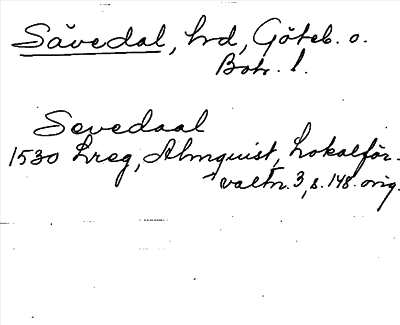 Sävedal, hd, Göteb. o.
Boh. l.
Sevedaal
1530 Lreg, Almquist, Lokalför-
valtn. 3, s. 148. orig.